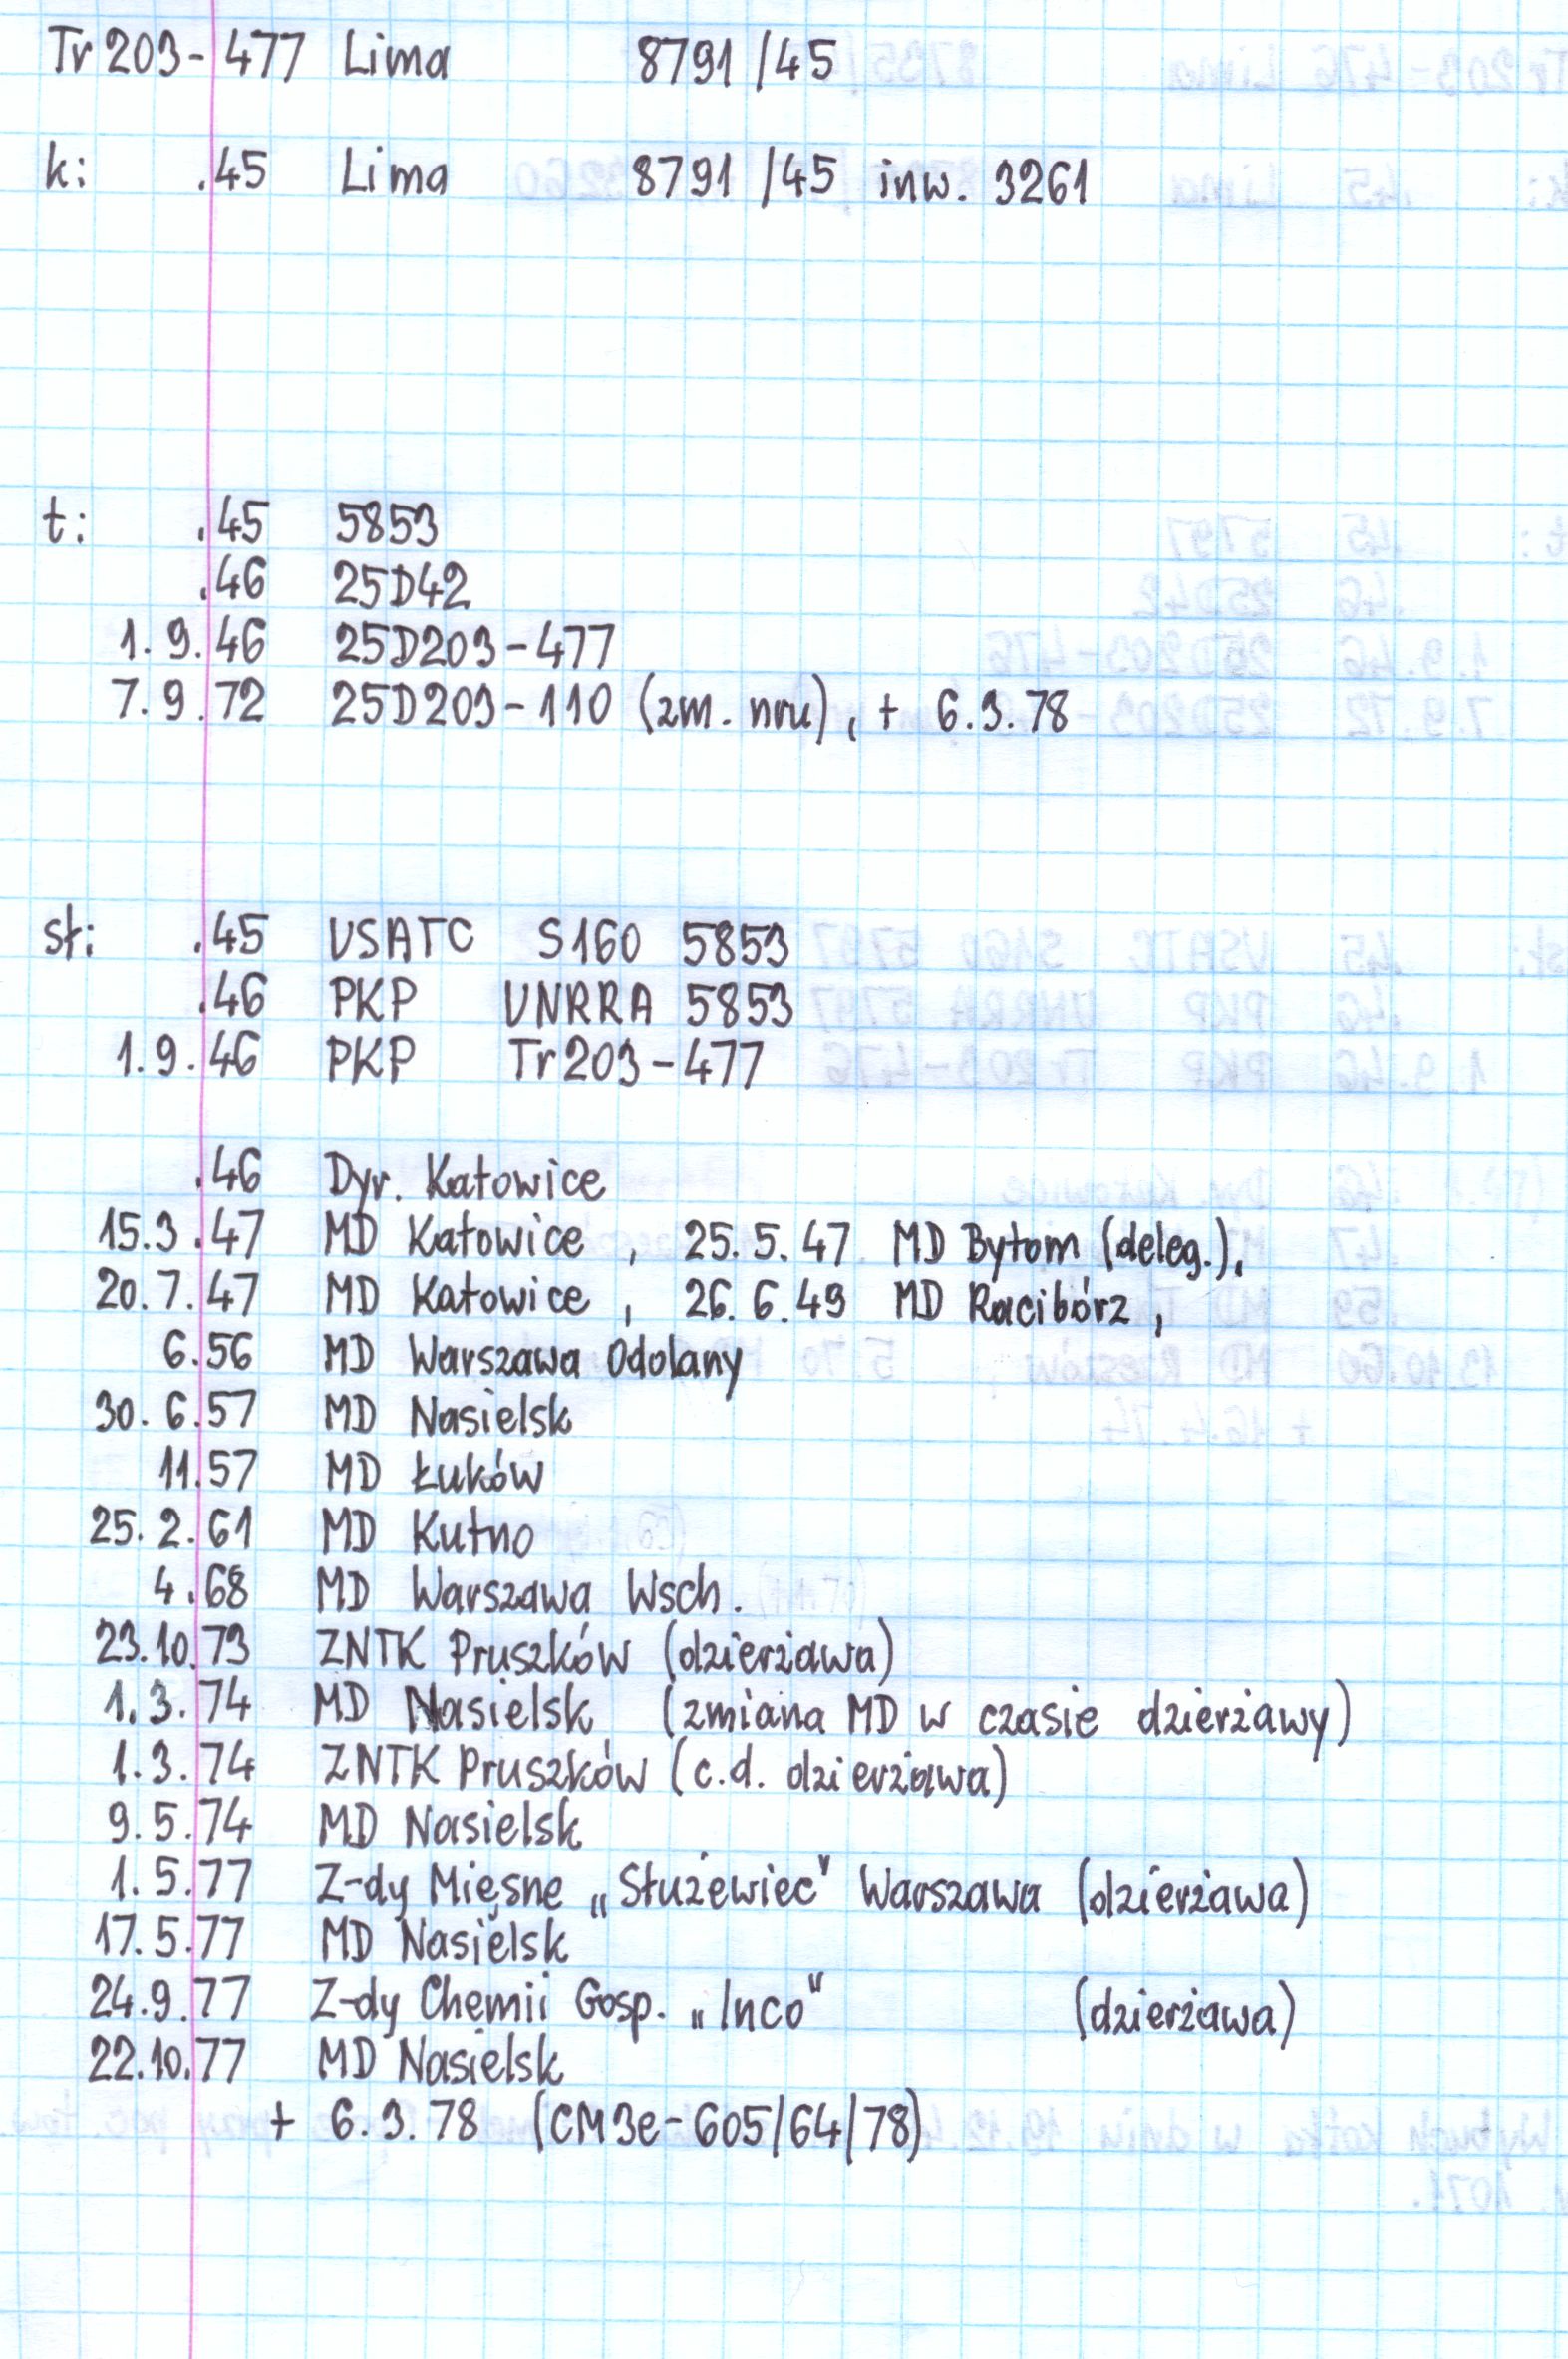 Tr 203-477 Lima 8791/45
k: .45 Lima 8791/45 inw. 3261
t: .45 5853
.46 25D42
1.9.46 25D203-477
7.9.72 25D203-110 (zm. nru), + 6.3.78
sł: .45 USATC S160 5853
.46 PKP UNRRA 5853
1.9.46 PKP Tr203-477
.46 Dyr. Katowice
15.3.47 MD Katowice, 25.5.47 MD Bytom (deleg.),
20.7.47 MD Katowice, 26.6.49 MD Racibórz,
6.56 MD Warszawa Odolany
30.6.57 MD Nasielsk
11.57 MD Łuków
25.2.61 MD Kutno
4.68 MD Warszawa Wsch.
23.10.73 ZNTK Pruszków (dzierżawa)
1.3.74 MD Nasielsk (zmiana MD w czasie dzierżawy)
1.3.74 ZNTK Pruszków (c.d. dzierżawa)
9.5.74 MD Nasielsk
1.5.77 Z-dy Mięsne „Służewiec" Warszawa (dzierżawa)
17.5.77 MD Nasielsk
24.9.77 Z-dy Chemii Gosp. „Inco" (dzierżawa)
22.10.77 MD Nasielsk
+ 6.3.78 (CM3e-605/64/78)